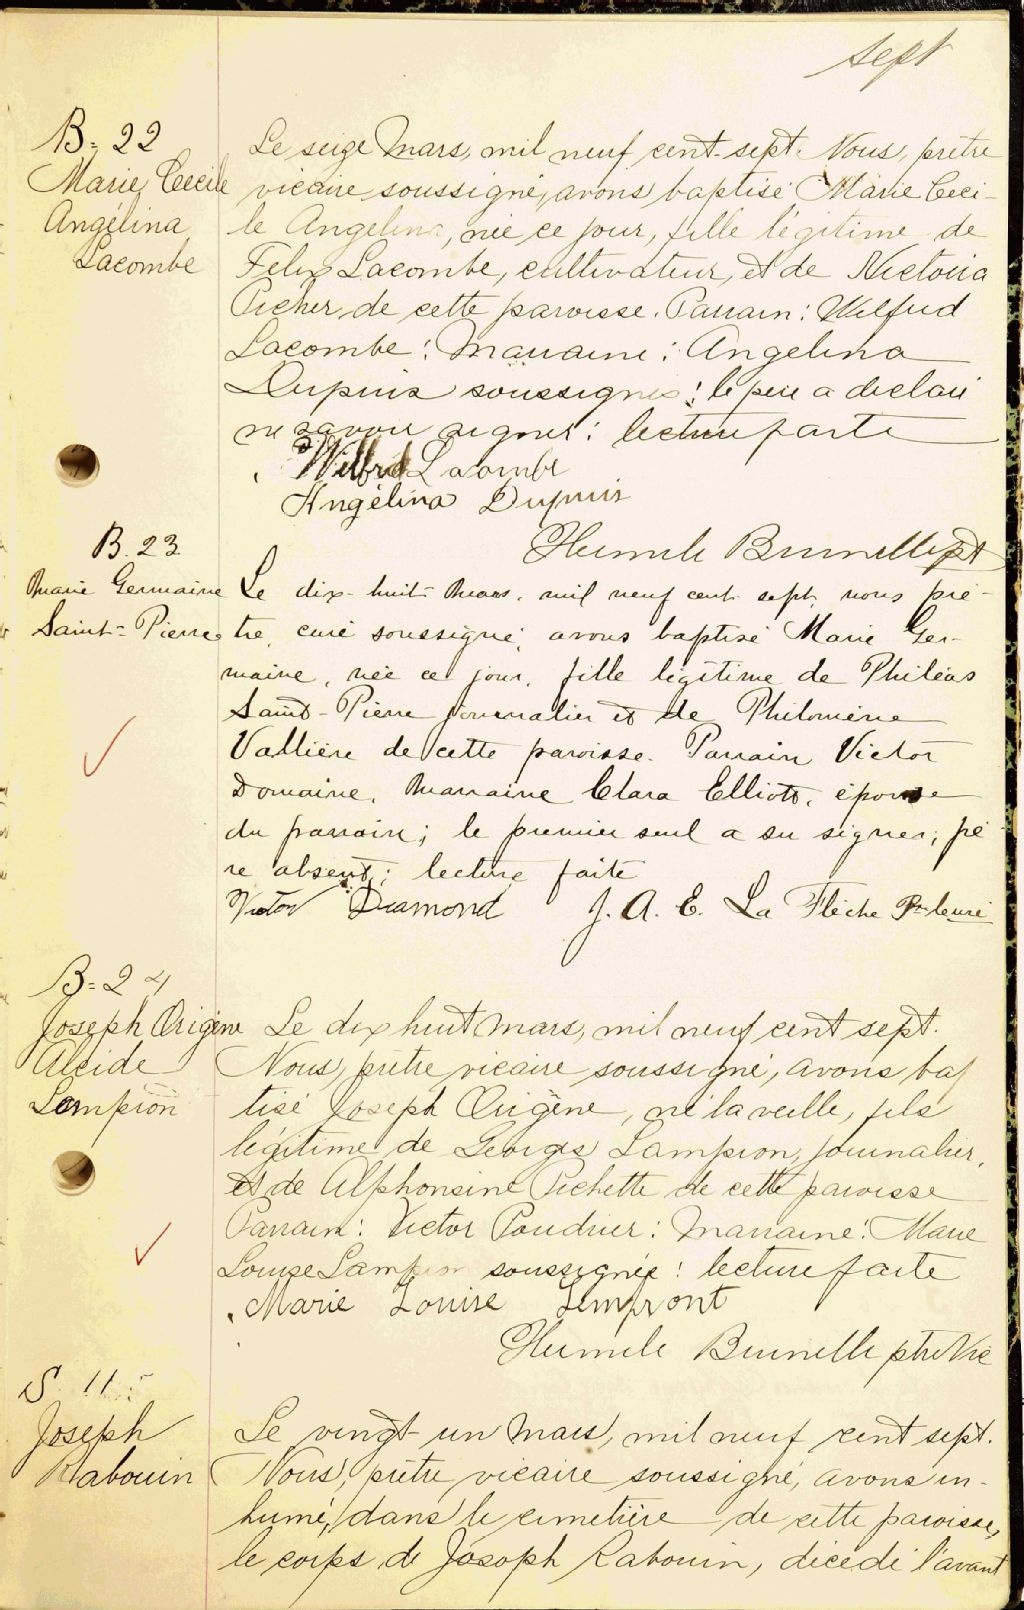 sept
B = 22
Marie Cecile
Angélina
Lacombe
Le seize Mars, mil neuf cent-sept. Nous, prêtre
vicaire soussigné, avons baptisé Marie Ceci-
le Angelina, née ce jour, fille légitime de
Felix Lacombe, cultivateur, et de Victoria
Picher de cette paroisse. Parrain: Wilfrid
Lacombe: Marraine: Angelina
Dupuis soussignés: le père a déclaré
ne savoir signer: lecture faite
Wilfrid Lacombe
Angélina Dupuis
Humile Brunelle pt
B. 23
Marie Germaine
Saint-Pierre
Le dix-huit Mars, mil neuf cent sept, nous prê-
tre, curé soussigné, avons baptisé Marie Ger-
maine, née ce jour, fille légitime de Philéas
Saint-Pierre journalier et de Philomène
Vallière de cette paroisse. Parrain Victor
Domaine, Marraine Clara Elliott, épouse
du parrain; le premier seul a su signer; pè
re absent; lecture faite
Victor Diamond J. A. E. La Flèche Ptre Curé
B = 24
Joseph Origène
Alcide
Lampion
Le dix huit Mars, mil neuf cent sept.
Nous, prêtre vicaire soussigné, avons bap
tisé Joseph Origène, né la veille, fils
légitime de Georges Lampion, journalier,
et de Alphonsine Pichette de cette paroisse
Parrain: Victor Poudrier: Marraine: Marie
Louise Lampion soussignée: lecture faite
Marie Louise Lempront
Humile Brunelle ptre Vic
S. 11
Joseph
Rabouin
Le vingt-un Mars, mil neuf cent sept.
Nous, prêtre vicaire soussigné, avons in-
humé, dans le cimetière de cette paroisse,
le corps de Joseph Rabouin, décédé l'avant